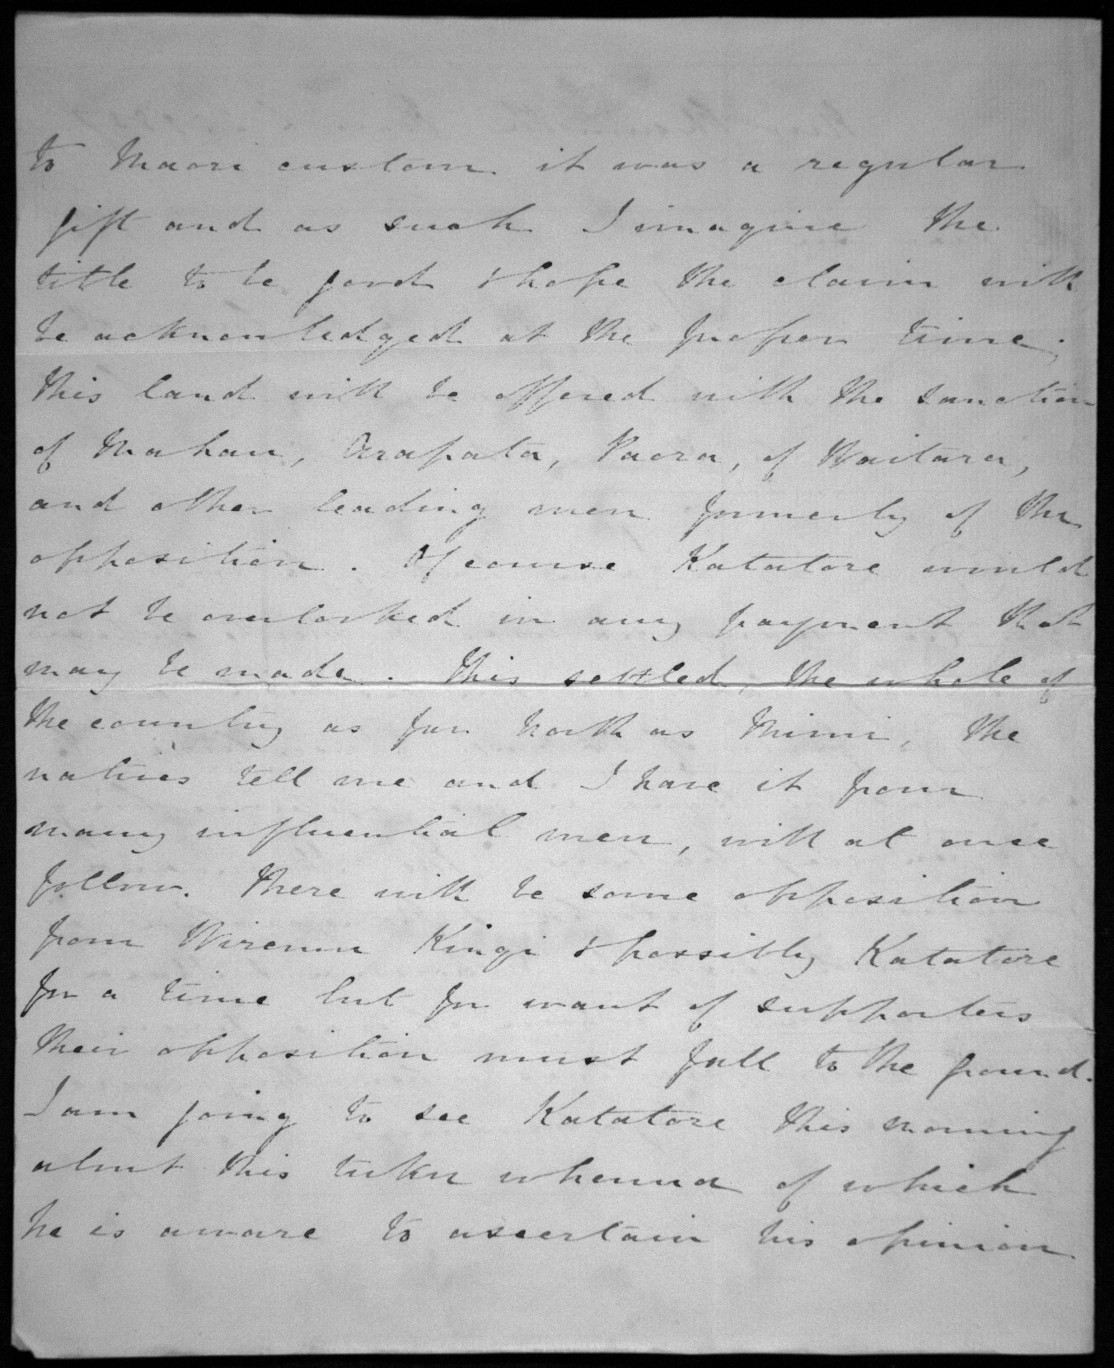 to Maori custom it was a regular
gift and as such I imagine the
title to be good & hope the claim will
be acknowledged at the proper time;
this land will be offered with the sanction
of Mahau, Arapata, Paora, of Waitara,
and other leading men formerly of the
opposition. Of course Katatore would
not be overlooked in any payment that
may be made. This settled, the whole of
the country as far North as Mimi, the
natives tell me and I have it from
many influential men, will at once
follow. There will be some opposition
from Wiremu Kingi & possibly Katatore
for a time but for want of supporters
their opposition must fall to the ground.
I am going to see Katatore this morning
about this tuku whenua of which
he is aware to ascertain his opinion